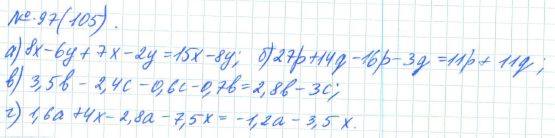 №97(105).
а) 8x-6y+7x-2y=15x-8y; б) 27p+14q-16p-3q=11p+11q;
в) 3,5b-2,4c-0,6c-0,7b=2,8b-3c;
г) 1,6a+4x-2,8a-7,5x=-1,2a-3,5x.